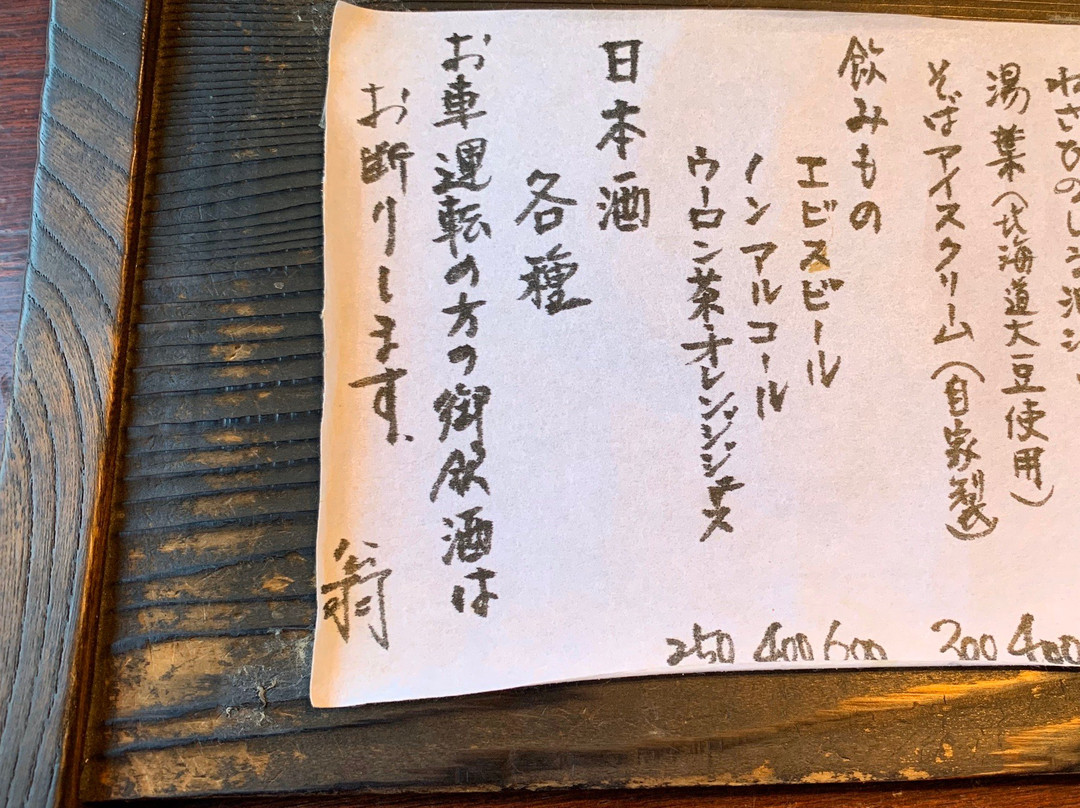 わさびの
湯葉(北海道大豆使用) 400
そばアイスクリーム(自家製) 300
飲みもの
エビスビール 600
ノンアルコール 400
ウーロン茶オレンジジュース 250
日本酒
各種
お車運転の方の御飲酒は
お断りします。
翁